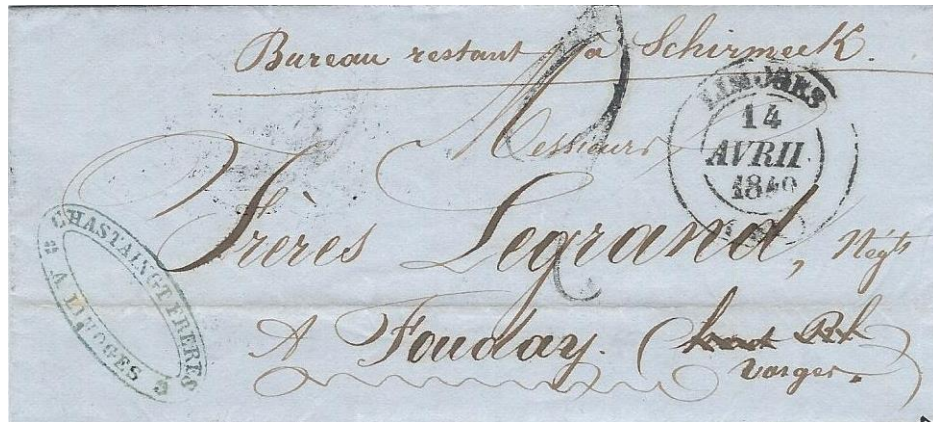 Bureau restant à Schirmeck.
LIMOGES
14
AVRIL
1849
Messieurs
Frères Legrand, Négts
A Fouday. (Rh
Vosges.
CHASTAINGT FRERES
A LIMOGES